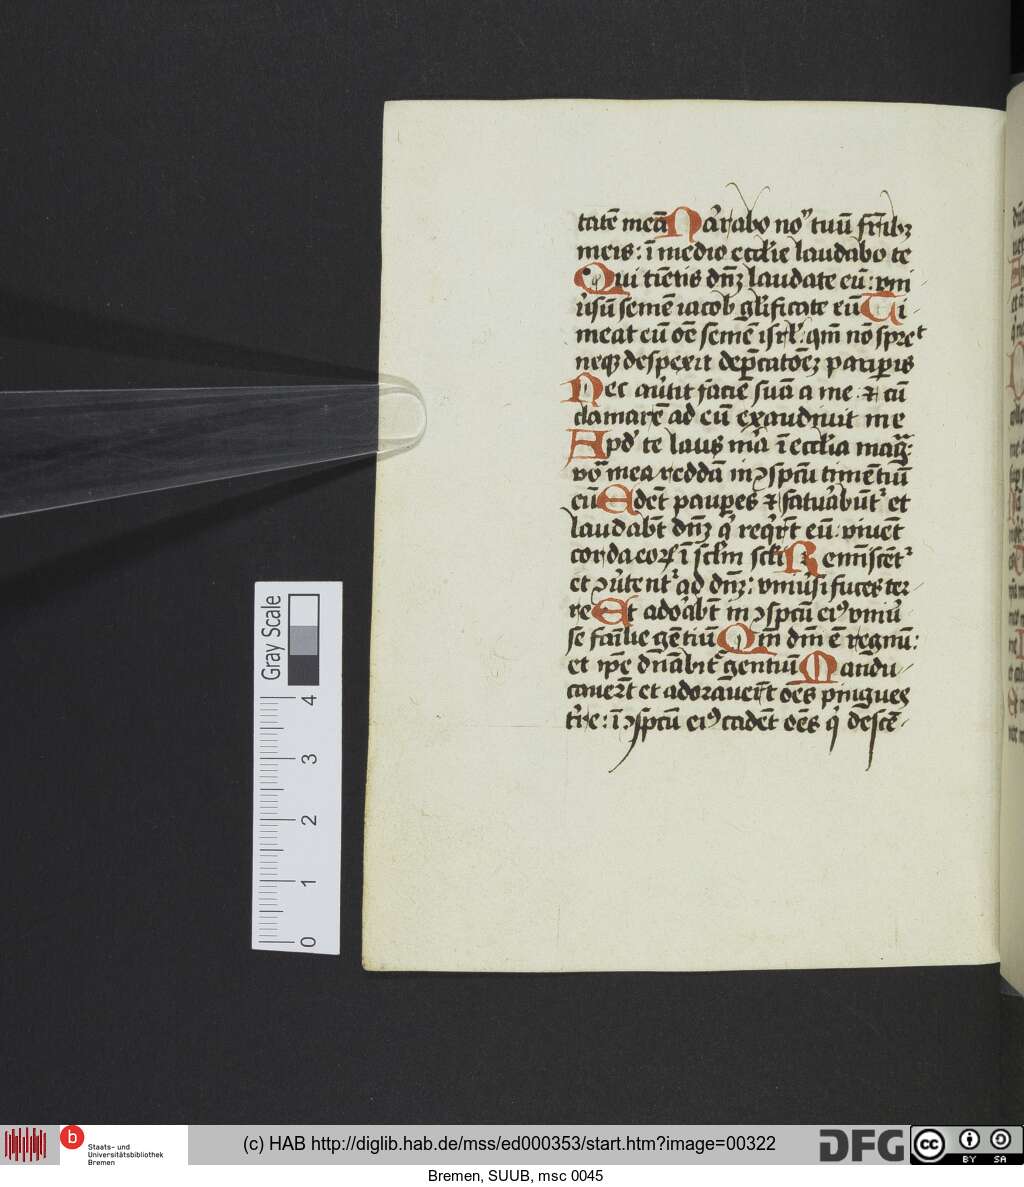 tatē meā Nar̄abo no᷒ tuū fr̄ibꝫ
meis: ī medio eccl̄ie laudabo te
Qui tīetis dn̄ꝫ laudate eū: vni
u̓sū semē iacob gl̓ificate eū Ti
meat eū oē semē isrl̓: qm̄ nō spreᵗ
neqꝫ despexit dep̄catōeꝫ paup̱is
Nec au̓tit faciē suā a me ⁊ cū
clamarē ad eū exaudiuit me
Apd̓ te laus m̄a ī eccl̄ia mag̅:
vo̅ mea reddā in ↄspc̄u timētiū
eū Edēt paup̱es ⁊ satur̄abūt᷑ et
laudabt̄ dn̄ꝫ q̓ req̓rt̄ eū viuēt
corda eoꝝ ī sc̄lm̄ scl̓i Remīscēt᷑
et ↄu̓tent᷑ ad dn̄ꝫ: vniu̓si fines ter
re Et ador̄abt̄ in ↄspc̄u ei᷒ vniu̓
se fam̄lie gētiū Qm̄ dn̄i ē regnū:
et ip̄e dn̄abit᷑ gentiū Māndu
cauer̄t et adorauer̄t oēs pingues
tr̄e: ī ↄspc̄u ei᷒ cadēt oēs q̓ descē
Gray Scale
4
3
2
1
0
b Staats- und
Universitätsbibliothek
Bremen
(c) HAB http://diglib.hab.de/mss/ed000353/start.htm?image=00322
DFG
cc BY SA
Bremen, SUUB, msc 0045